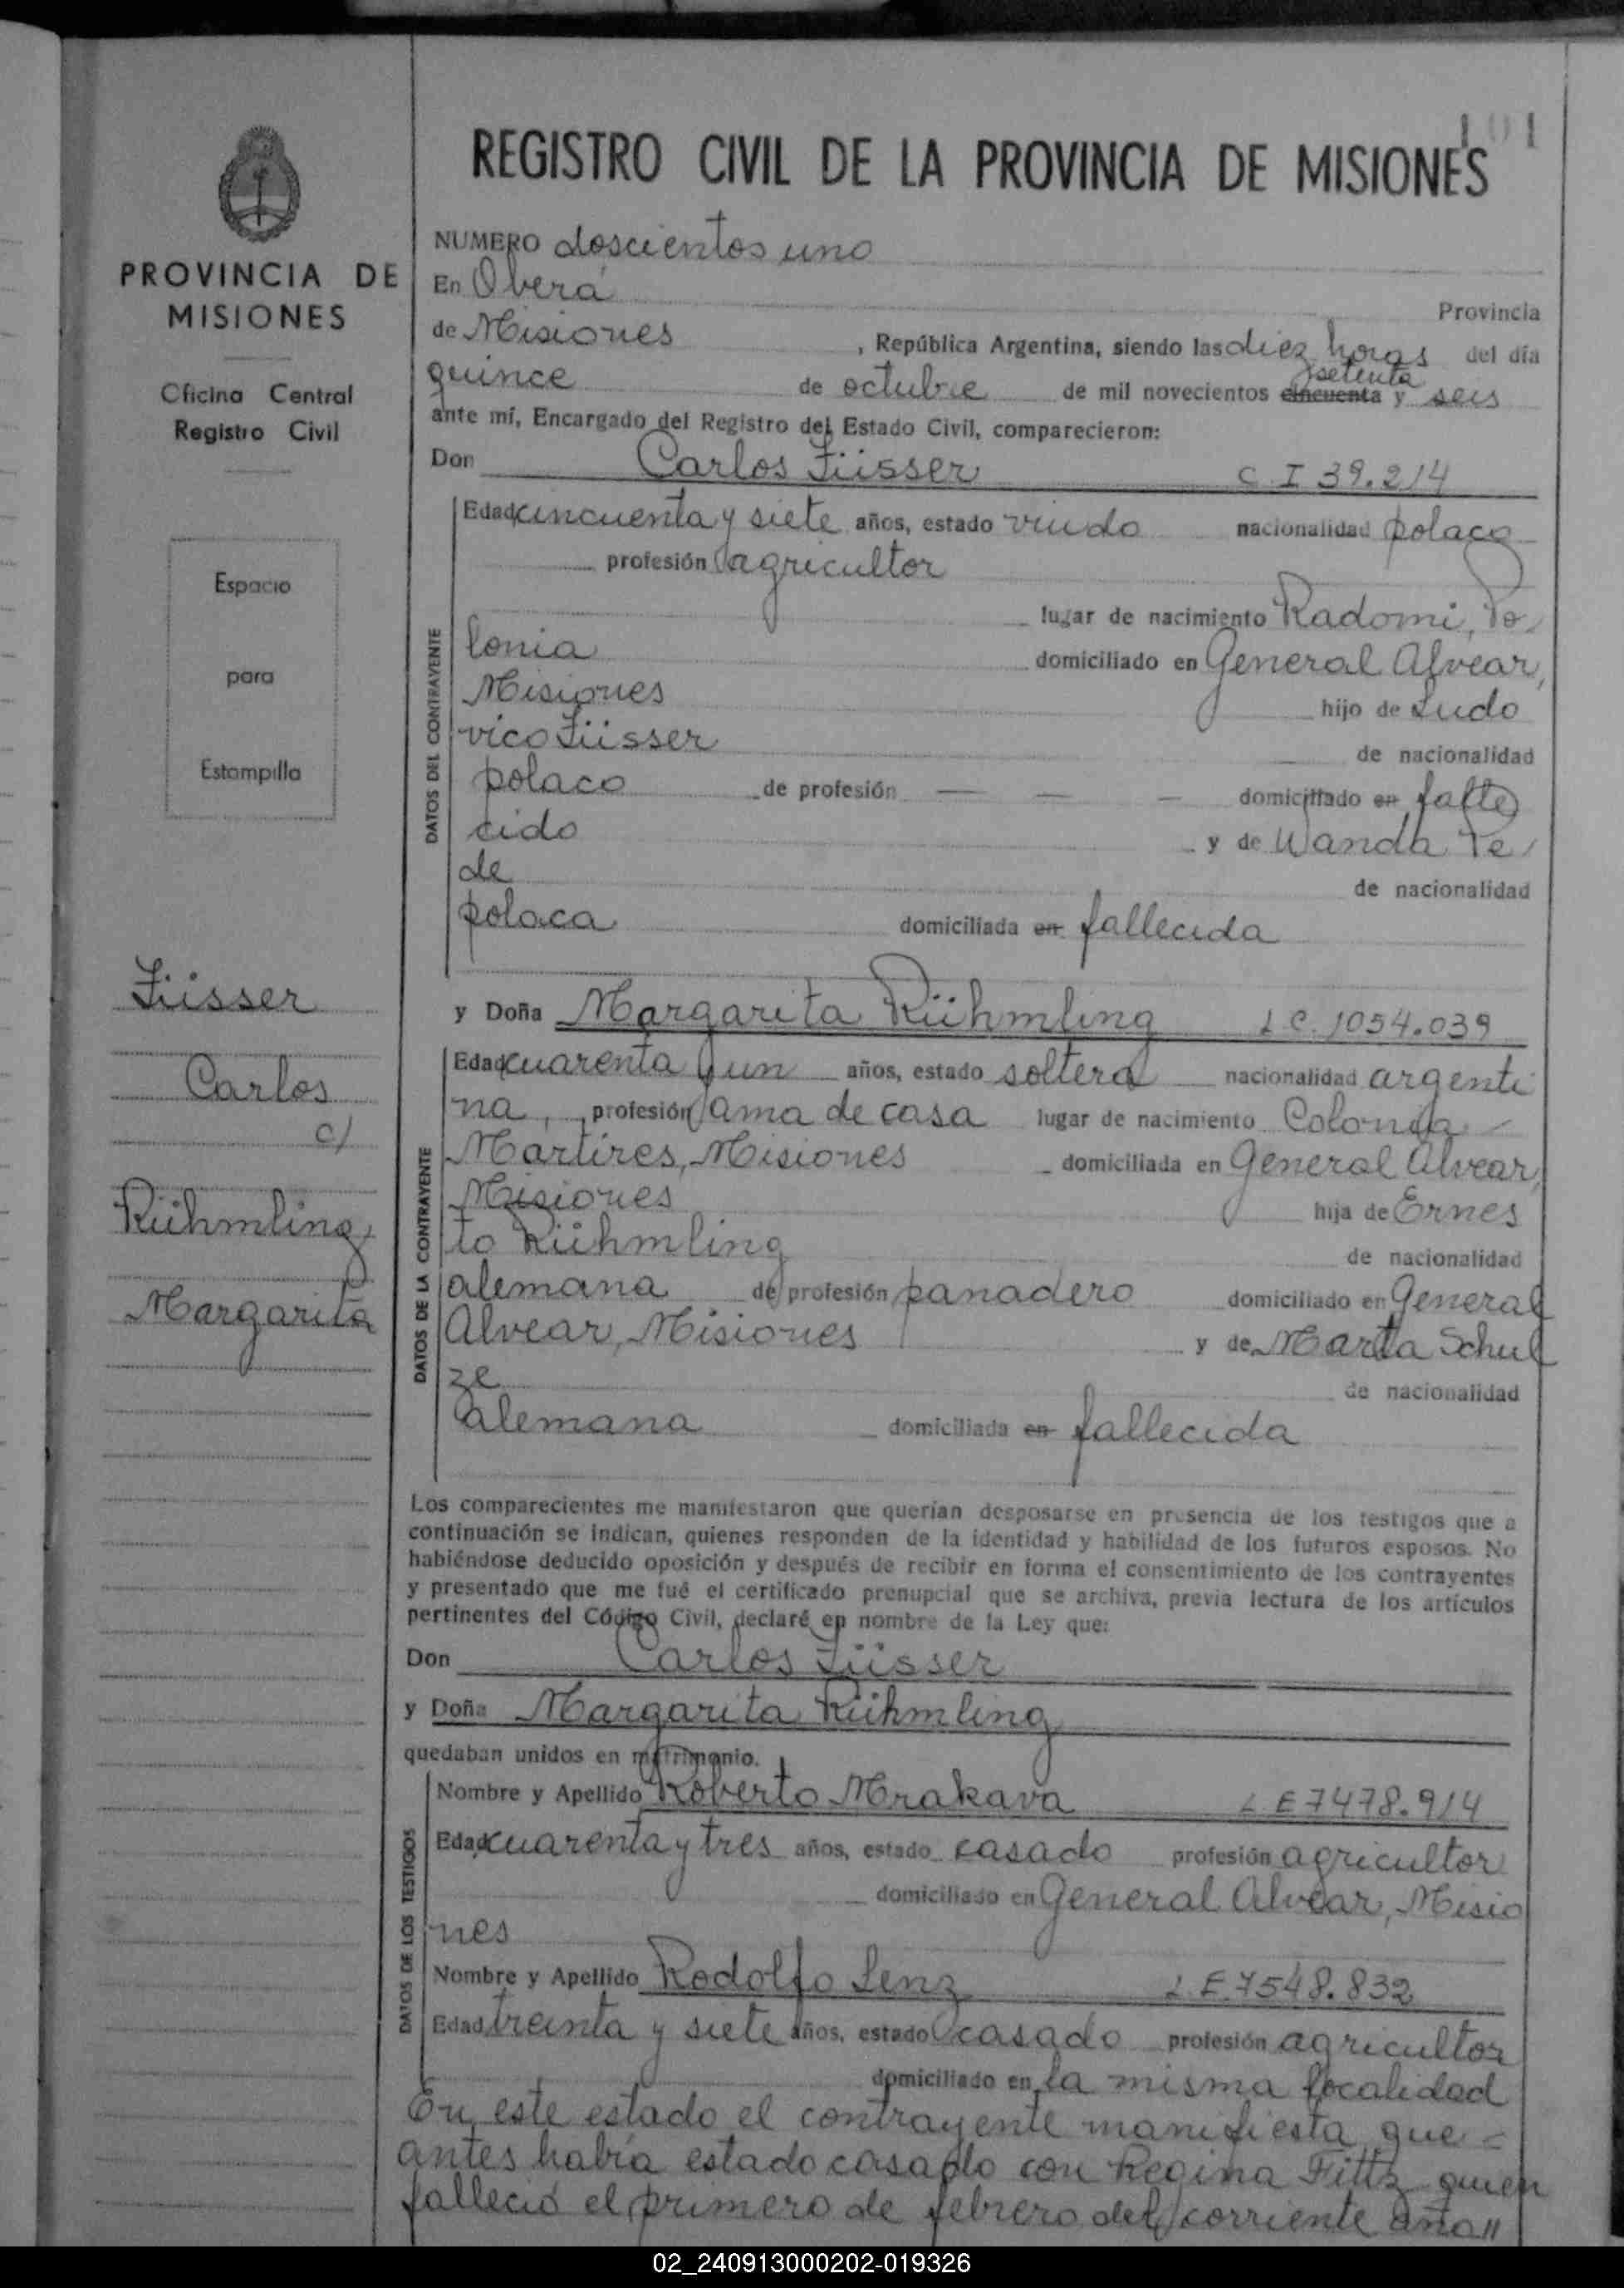 101
REGISTRO CIVIL DE LA PROVINCIA DE MISIONES
PROVINCIA DE
MISIONES
Oficina Central
Registro Civil
Espacio
para
Estampilla
Füsser
Carlos
c/
Rühmling
Margarita
NUMERO doscientos uno
En Oberá Provincia
de Misiones , República Argentina, siendo las diez horas del día
quince de octubre de mil novecientos cincuenta setenta y seis
ante mí, Encargado del Registro del Estado Civil, comparecieron:
Don Carlos Füsser C I 39.214
DATOS DEL CONTRAYENTE
Edad cincuenta y siete años, estado viudo nacionalidad polaco
profesión agricultor
lugar de nacimiento Radomi, Po
lonia domiciliado en General Alvear,
Misiones hijo de Ludo
vico Füsser de nacionalidad
polaco de profesión — — — domiciliado en falle
cido y de Wanda Pe
de de nacionalidad
polaca domiciliada en fallecida
y Doña Margarita Rühmling L C. 1054.039
DATOS DE LA CONTRAYENTE
Edad cuarenta y un años, estado soltera nacionalidad argenti
na, profesión ama de casa lugar de nacimiento Colonia
Martires, Misiones domiciliada en General Alvear,
Misiones hija de Ernes
to Rühmling de nacionalidad
alemana de profesión panadero domiciliado en General
Alvear, Misiones y de Marta Schul
ze de nacionalidad
alemana domiciliada en fallecida
Los comparecientes me manifestaron que querían desposarse en presencia de los testigos que a
continuación se indican, quienes responden de la identidad y habilidad de los futuros esposos. No
habiéndose deducido oposición y después de recibir en forma el consentimiento de los contrayentes
y presentado que me fué el certificado prenupcial que se archiva, previa lectura de los artículos
pertinentes del Código Civil, declaré en nombre de la Ley que:
Don Carlos Füsser
y Doña Margarita Rühmling
quedaban unidos en matrimonio.
DATOS DE LOS TESTIGOS
Nombre y Apellido Roberto Mrakava L E 7478.914
Edad cuarenta y tres años, estado casado profesión agricultor
domiciliado en General Alvear, Misio
nes
Nombre y Apellido Rodolfo Lenz L E 7548.832
Edad treinta y siete años, estado casado profesión agricultor
domiciliado en la misma localidad
En este estado el contrayente manifiesta que
antes había estado casado con Regina Fittz quien
falleció el primero de febrero del corriente año"
02_240913000202-019326